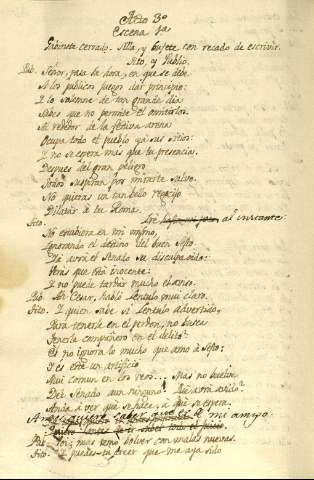 Acto 3º
Escena 1ª
Gabinete cerrado. Silla, y bufete con recado de escrivir.
Tito, y Publio.
Pub. Señor, pasa la hora, en que se debe
A los publicos juegos dar principio:
Y lo solemne de un grande dia
Sabes que no permite el omitirlos.
Al rededor de la festiva arena
Ocupa todo el pueblo ya sus sitios:
Y no se espera mas que tu presencia.
Despues del gran peligro
Todos suspiran por mirarte salvo.
No quieras un tan bello regocijo
Dilatar à tu Roma.
Tito. Iré al instante.
No estubiera en mi
Ignorando el destino del buen Sesto.
Ya avrà el Senado su disculpa oido:
Veràs que està inocente:
Y no puede tardar mucho el aviso.
Pub. Ah Cesar, hablò Lentulo muy claro.
Tito. Y quien sabe si Lentulo advertido,
Para tenerle en el perdon, no busca
Tenerle compañero en el delito?
El no ignora lo mucho que amo à Sesto:
Y es este un artificio
Mui comun en los reos... Mas no buelve
Del Senado aun ninguno! Què avrà avido?
Anda à ver que se hace, à què se espera.
Antes quiero saber que es de mi amigo
Pub. Voy; mas temo bolver con malas nuevas.
Tito. Y puedes tu creer que me aya sido